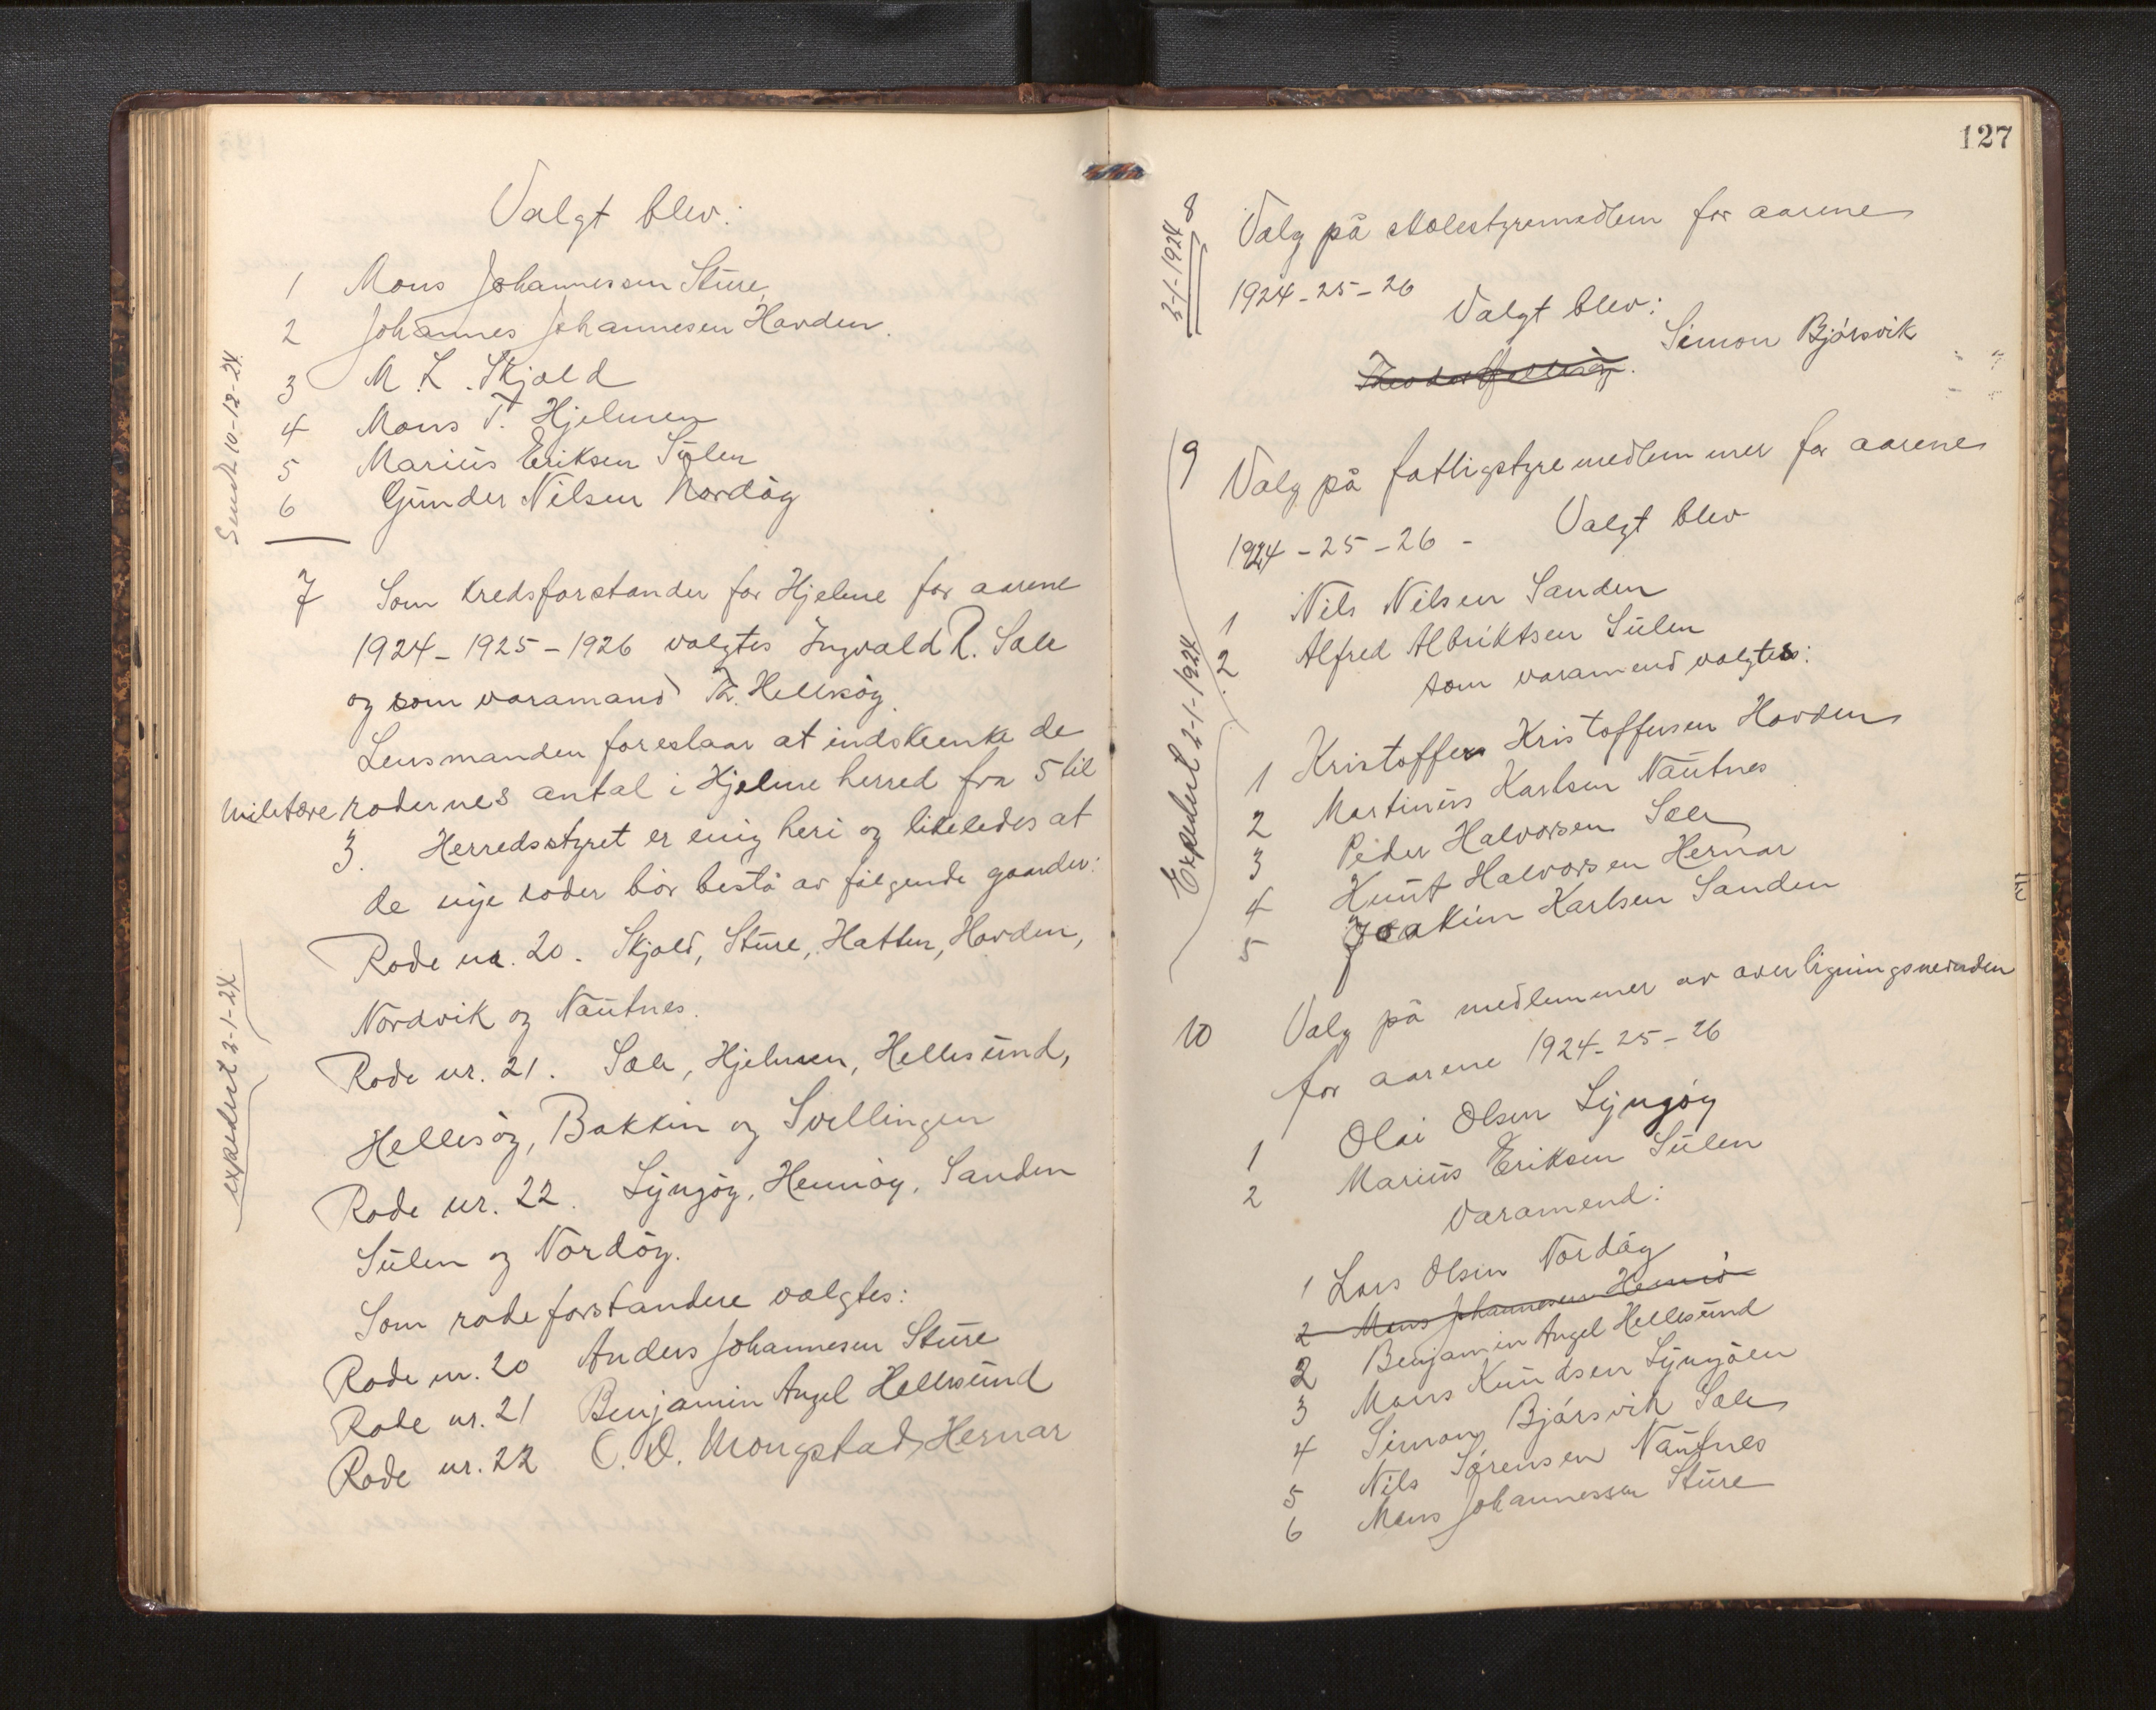 Valgt blev:
1 Mons Johannessen Sture
2 Johannes Johannesen Hovden.
3 M. L. Skjold
4 Mons T. Hjelmen
5 Marius Eriksen Sulen
6 Gunder Nilsen Nordøy
Sendt 10-12-24.
7 Som kredsforstander for Hjelme for aarene
1924-1925-1926 valgtes Ingvald R. Sæle
og som varamand Th. Hellesøy.
Lensmanden foreslaar at indskrenke de
militære rodernes antal i Hjelme herred fra 5 til
3. Herredsstyret er enig heri og likeledes at
de nye roder bør bestå av følgende gaarder:
Rode nr. 20. Skjold, Sture, Hatten, Hovden,
Nordvik og Nautnes.
Rode nr. 21. Sæle, Hjelmen, Hellesund,
Hellesøy, Bakken og Svellingen
Rode nr. 22. Lyngøy, Hernøy, Sanden
Sulen og Nordøy.
Som rodeforstandere valgtes:
Rode nr. 20 Anders Johannesen Sture
Rode nr. 21 Benjamin Angel Hellesund
Rode nr. 22 O. O. Mongstad, Hernar
expedert 2-1-24
127
2-1-1924
8 Valg på skolestyremedlem for aarene
1924-25-26
Valgt blev:
Simon Bjørsvik
9 Valg på fattigstyremedlemmer for aarene
1924-25-26 - Valgt blev
1 Nils Nilsen Sanden
2 Alfred Albriktsen Sulen
som varamend valgtes:
1 Kristoffer Kristoffersen Hovden
2 Martinus Karlsen Nautnes
3 Peder Halvorsen Sæle
4 Knut Halvorsen Hernar
5 Joakim Karlsen Sanden
Expedert 2-1-1924
10 Valg på medlemmer av overligningsnevnden
for aarene 1924-25-26
1 Olai Olsen Lyngøy
2 Marius Eriksen Sulen
Varamend:
1 Lars Olsen Nordøy
2 Mons Johannesen Hernø
2 Benjamin Angel Hellesund
3 Mons Knudsen Lyngøen
4 Simon Bjørsvik Sæle
5 Nils Sørensen Nautnes
6 Mons Johannessen Sture